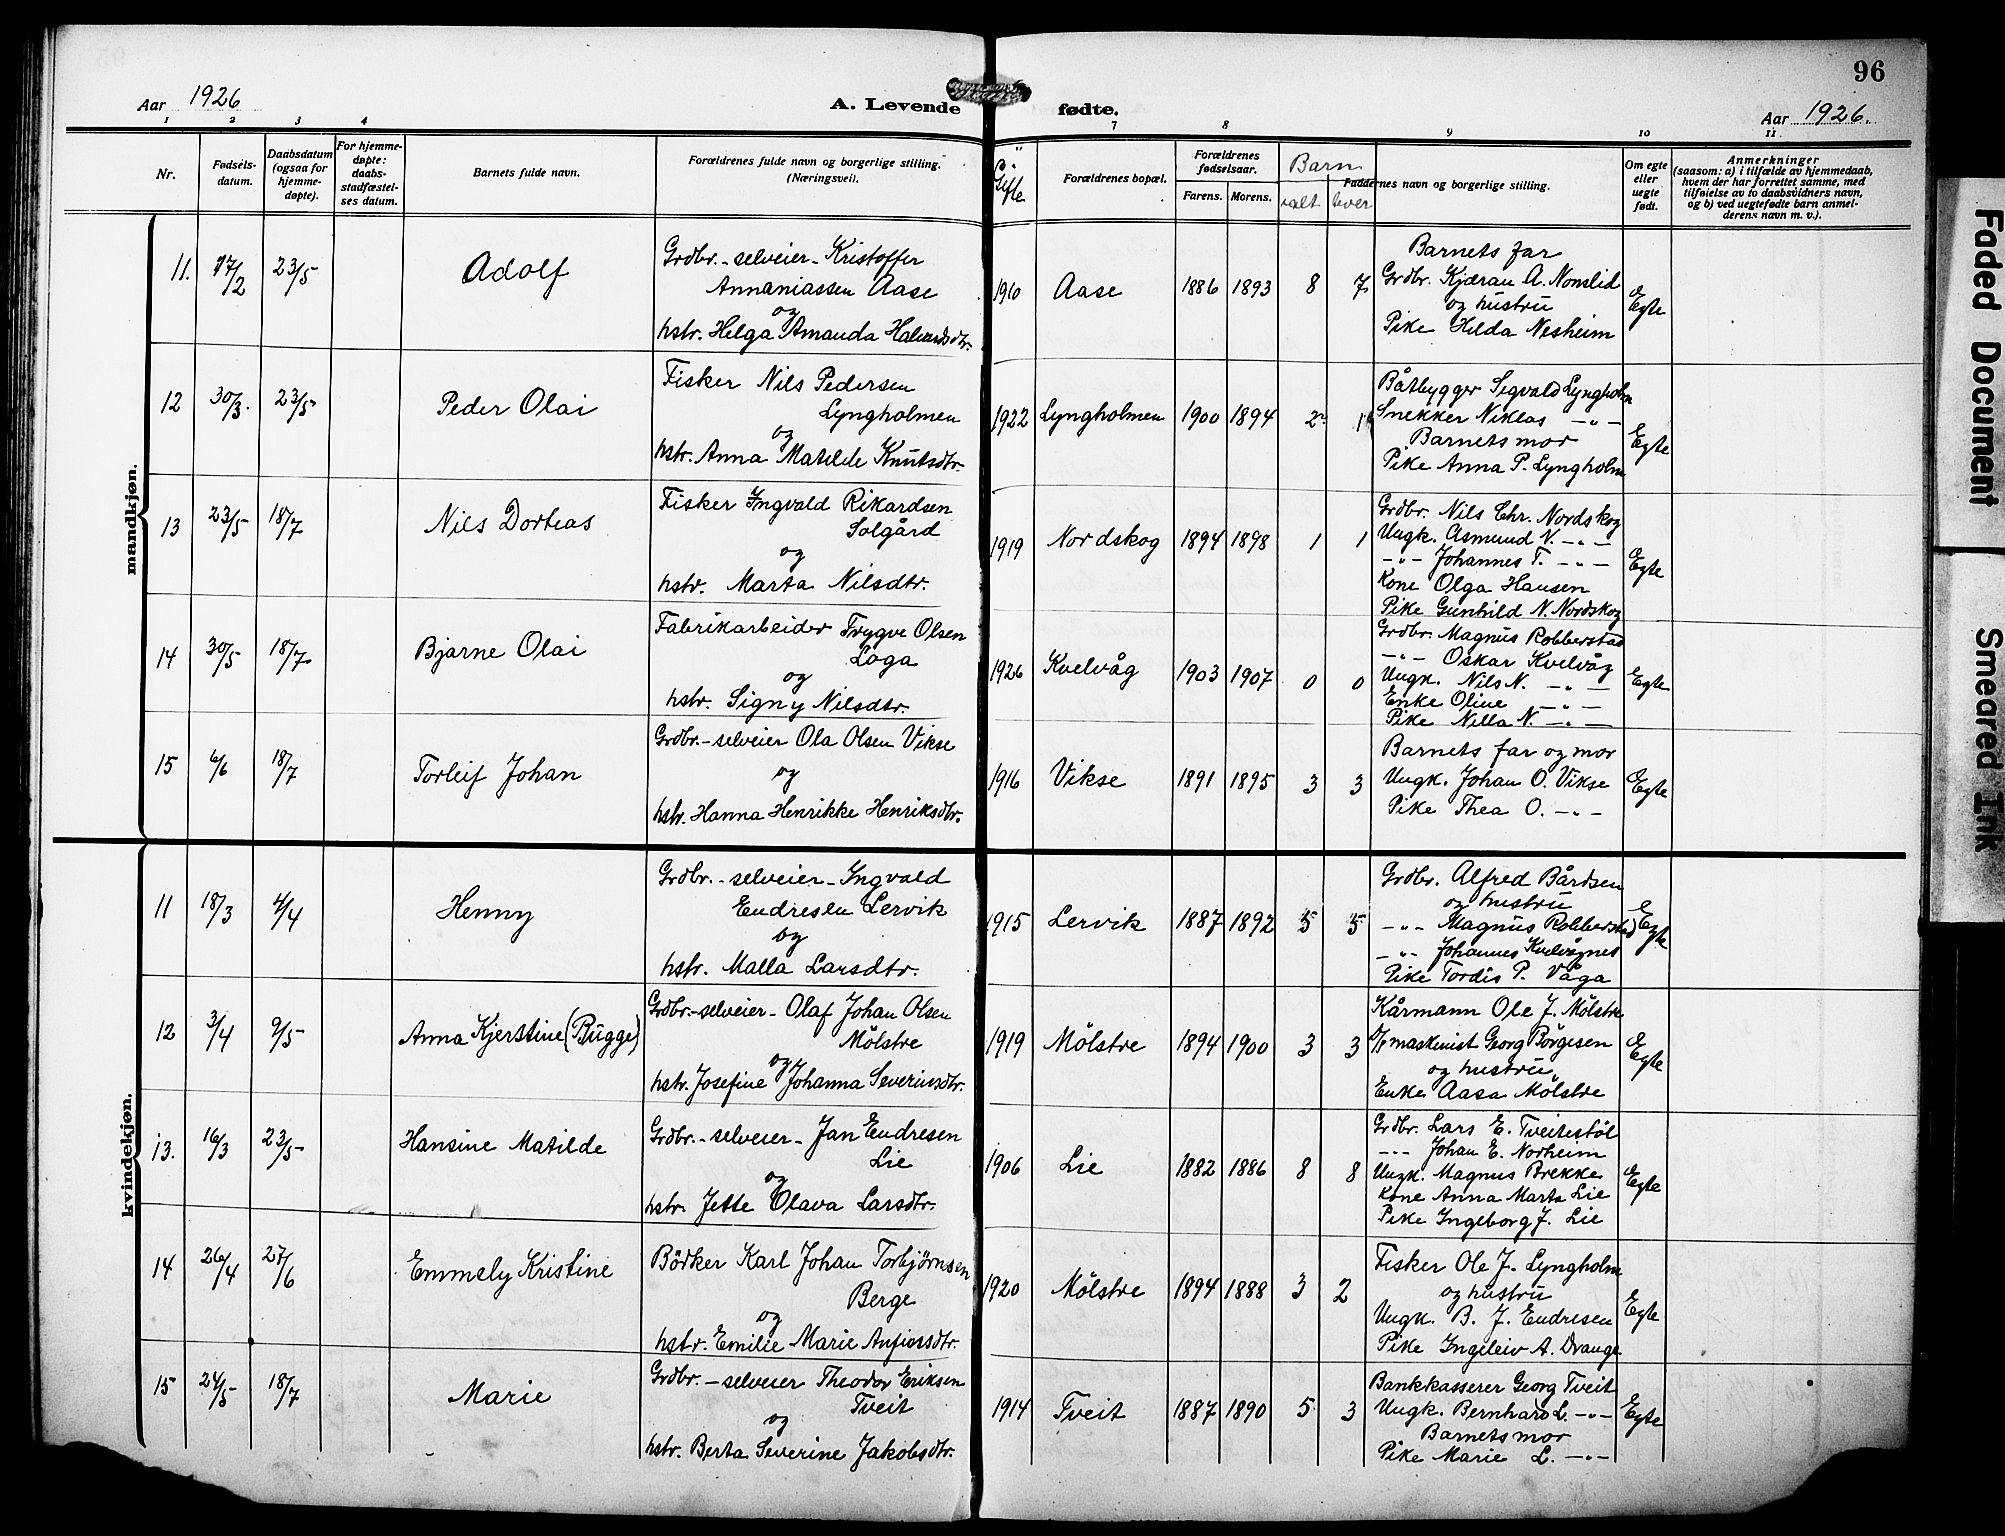 96
Aar 1926
A. Levende fødte.
Aar 1926.
1 2 3 4 7 8 9 10 11
Nr.
Fødsels-
datum.
Daabsdatum
(ogsaa for
hjemme-
døpte).
For hjemme-
døpte:
daabs-
stadfæstel-
ses datum.
Barnets fulde navn.
Forældrenes fulde navn og borgerlige stilling.
(Næringsvei).
Gifte
Forældrenes bopæl.
Forældrenes
fødselsaar.
Farens. Morens.
Barn
alt lever
Faddernes navn og borgerlige stilling.
Om egte
eller
uegte
født.
Anmerkninger
(saasom: a) i tilfælde av hjemmedaab,
hvem der har forrettet samme, med
tilføielse av to daabsvidners navn,
og b) ved uegtefødte barn anmel-
derens navn m. v.).
mandkjøn.
11. 17/2 23/5 Adolf
Grdbr. - selveier - Kristoffer
Annaniassen Aase
og
hstr. Helga Amanda Halvardsdtr.
1910 Aase 1886 1893 8 7
Barnets far
Grdbr. Kjæran A. Nonslid
og hustru
Pike Hilda Nesheim
Egte
12 30/3. 23/5 Peder Olai
Fisker Nils Pedersen
Lyngholmen
og
hstr. Anna Matilde Knutsdtr.
1922 Lyngholmen 1900 1894 2 1
Båtbygger Sigvald Lyngholm
Snekker Niklas -"-
Barnets mor
Pike Anna P. Lyngholm
Egte
13 23/5 18/7 Nils Dorteas
Fisker Ingvald Rikardsen
Solgård
og
hstr. Marta Nilsdtr.
1919 Nordskog 1894 1898 1 1
Grdbr. Nils Chr. Nordskog
Ungk. Asmund N. -"-
-"- Johannes T. -"-
Kone Olga Hansen
Pike Gunhild N. Nordskog
Egte
14 30/5 18/7 Bjarne Olai
Fabrikarbeider Trygve Olsen
Loga
og
hstr. Signy Nilsdtr.
1926 Kvelvåg 1903 1907 0 0
Grdbr. Magnus Robberstad
-"- Oskar Kvelvåg
Ungk. Nils N. -"-
Enke Oline -"-
Pike Nilla N. -"-
Egte
15 6/6 18/7 Torleif Johan
Grdbr. - selveier Ola Olsen Vikse
og
hstr. Hanna Henrikke Henriksdtr.
1916 Vikse 1891 1895 3 3
Barnets far og mor
Ungk. Johan O. Vikse
Pike Thea O. -"-
Egte
kvindekjøn.
11 18/3 4/4 Henny
Grdbr. - selveier - Ingvald
Endresen Lervik
og
hstr. Malla Larsdtr.
1915 Lervik 1887 1892 5 5
Grdbr. Alfred Bårdsen
og hustru
-"- Magnus Robberstad
-"- Johannes Kvelvågnes
Pike Tordis P. Våga
Egte
12 3/4 9/5 Anna Kjerstine (Bugge)
Grdbr. - selveier - Olaf Johan Olsen
Mölstre
og
hstr. Josefine Johanna Severinsdtr.
1919 Mölstre 1894 1900 3 3
Kårmann Ole J. Mölstre
maskinist Georg Börgesen
og hustru
Enke Aasa Mölstre
Egte
13. 16/3 23/5 Hansine Matilde
Grdbr. - selveier - Jan Endresen
Lie
og
hstr. Jette Olava Larsdtr.
1906 Lie 1882 1886 8 8
Grdbr. Lars E. Tveitestöl
-"- Johan E. Norheim
Ungk. Magnus Brekke
Kone Anna Marta Lie
Pike Ingeborg J. Lie
Egte
14 26/4 27/6 Emmely Kristine
Bödker Karl Johan Torbjörnsen
Berge
og
hstr. Emilie Marie Anfinsdtr.
1920 Mölstre 1894 1888 3 2
Fisker Ole J. Lyngholm
og hustru
Ungk. B. J. Endresen
Pike Ingeleiv A. Drange
Egte
15 24/5 18/7 Marie
Grdbr. - selveier Theodor Eriksen
Tveit
og
hstr. Berta Severine Jakobsdtr.
1914 Tveit 1887 1890 5 3
Bankkasserer Georg Tveit
Ungk. Bernhard L. -"-
Barnets mor
Pike Marie L. -"-
Egte
Faded Document
Smeared Ink